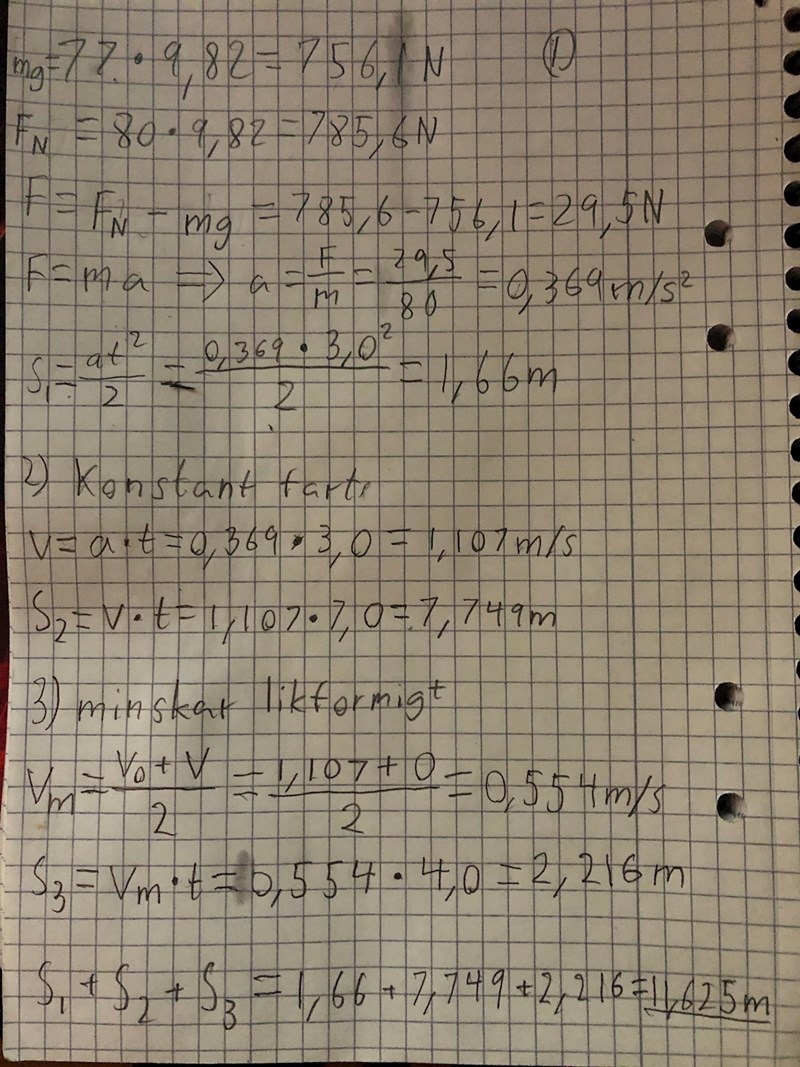 mg=77·9,82=756,1N ①
F_N = 80·9,82=785,6N
F = F_N - mg = 785,6-756,1=29,5N
F=ma ⇒ a = F/m = 29,5/80 = 0,369m/s²
S₁ = at²/2 = 0,369·3,0²/2 = 1,66m
2) Konstant fart,
V=a·t=0,369·3,0=1,107m/s
S₂=V·t=1,107·7,0=7,749m
3) minskar likformigt
V_m = V₀+V/2 = 1,107+0/2 = 0,554m/s
S₃=V_m·t=0,554·4,0=2,216m
S₁+S₂+S₃=1,66+7,749+2,216=11,625m